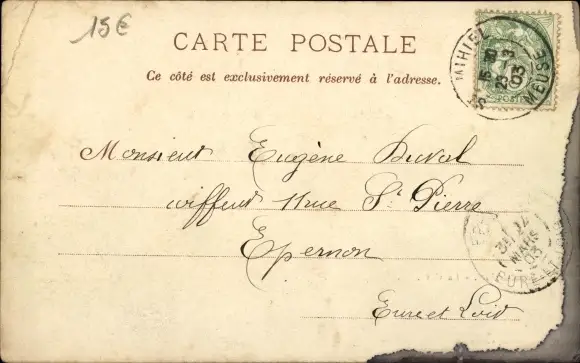 15€
CARTE POSTALE
Ce côté est exclusivement réservé à l'adresse.
St MIHIEL
23 3
03
MEUSE
Monsieur Eugène Duval
coiffeur 11 rue St Pierre
Epernon
Eure et Loir
MARS
03